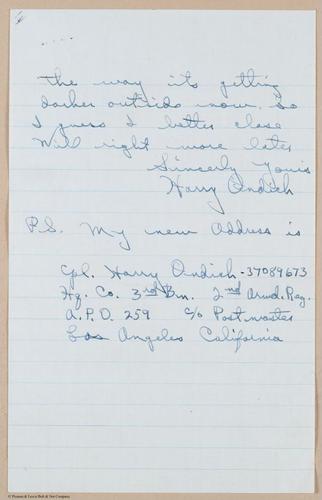 the way its getting
darker outside now. so
I guess I better close
Will right more later
Sincerly Yours
Harry Ondich
P.S. My new address is
Cpl. Harry Ondich - 37089673
Hq. Co. 3rd Bn. 2nd Armd. Reg.
A.P.O. 259 c/o Postmaster
Los Angeles California